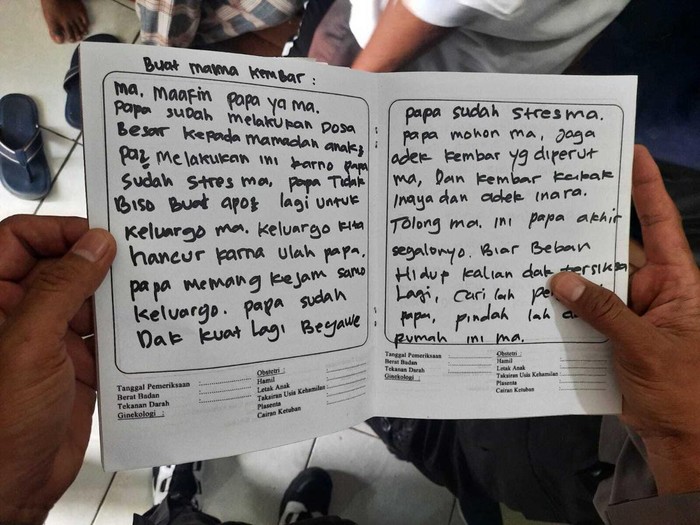 Buat mama kembar :
ma. maafin papa ya ma.
papa sudah melakukan Dosa
Besar kepada mamadan anak2
pa2 melakukan ini karno papa
sudah stres ma, papa Tidak
Biso Buat apo2 lagi untuk
keluargo ma. keluargo kita
hancur karna ulah papa.
papa memang kejam samo
keluargo. papa sudah
Dak kuat Lagi Begawe
Tanggal Pemeriksaan :
Berat Badan :
Tekanan Darah :
Ginekologi :
Obstetri :
Hamil
Letak Anak
Taksiran Usia Kehamilan
Plasenta
Cairan Ketuban
papa sudah stres ma.
papa mohon ma, jaga
adek kembar yg diperut
ma, Dan kembar kakak
inaya dan adek inara.
Tolong ma. ini papa akhir
segalonyo. Biar Beban
Hidup kalian dak tersiksa
Lagi, cari lah
papa, pindah lah
rumah ini ma.
Tanggal Pemeriksaan :
Berat Badan :
Tekanan Darah :
Ginekologi :
Obstetri :
Hamil
Letak Anak
Taksiran Usia Kehamilan
Plasenta
Cairan Ketuban